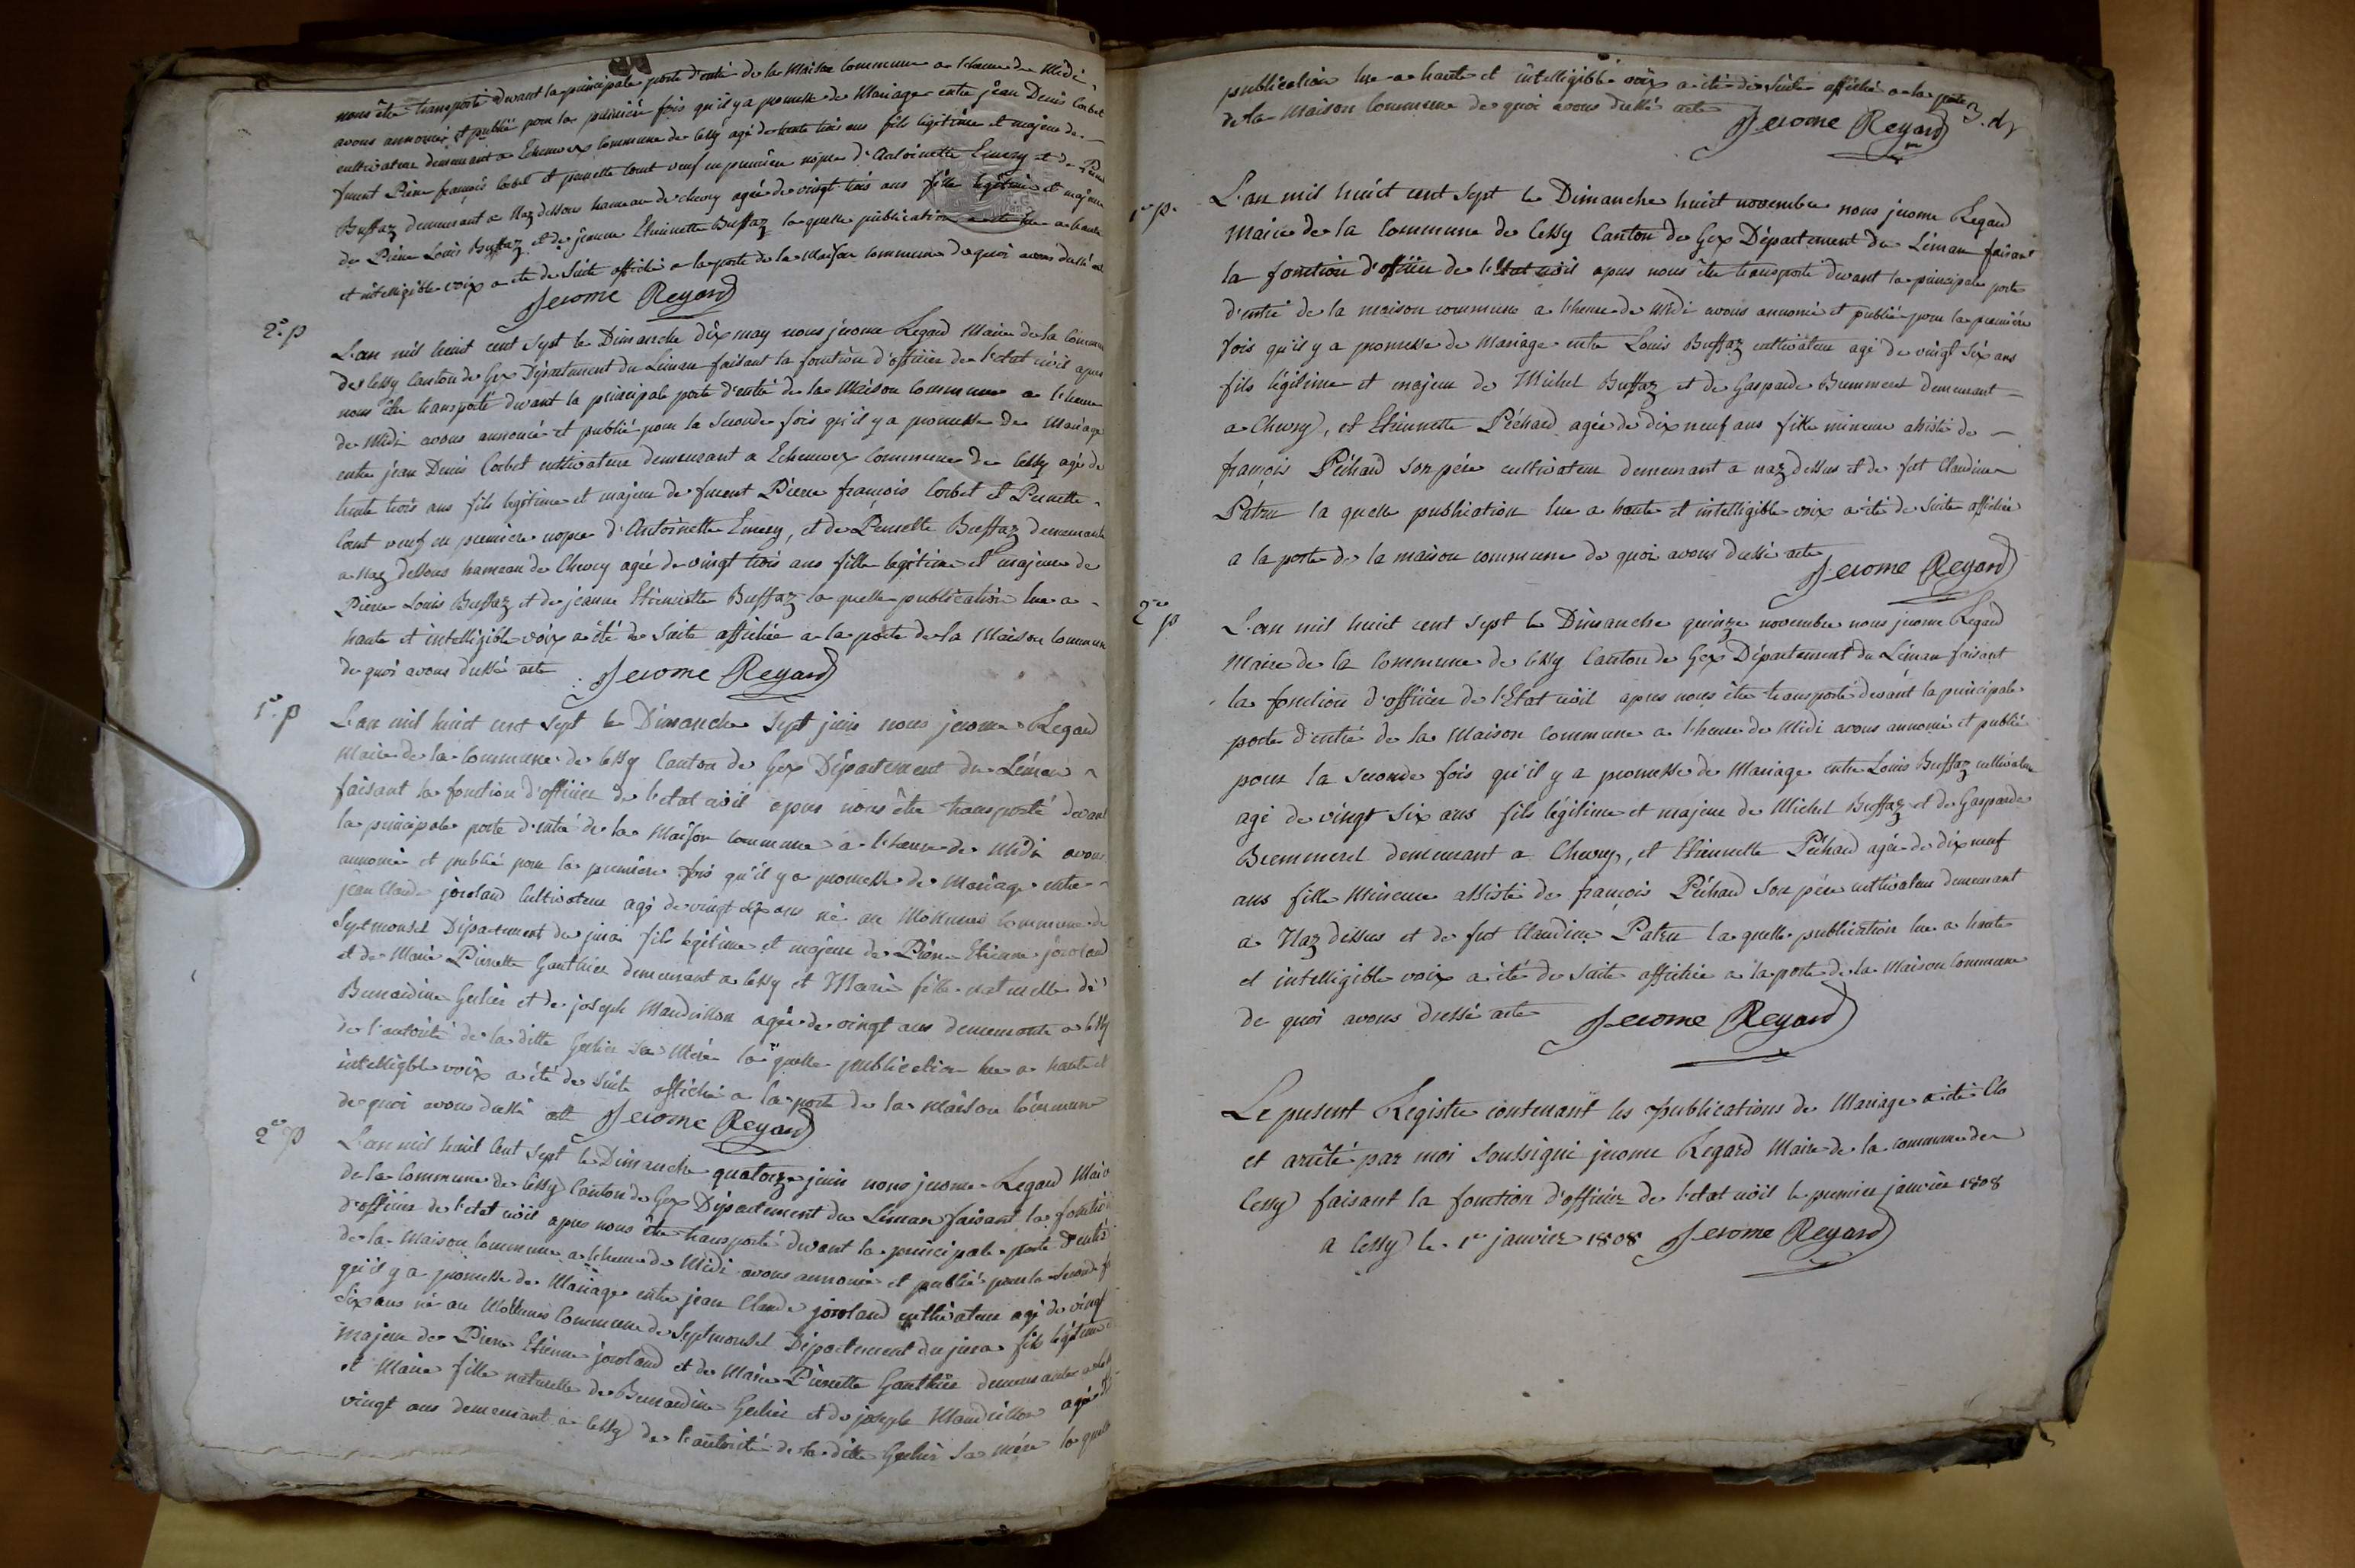 nous être transporté devant la principale porte d'entré de la Maison Commune a l'heure de Midi
avons annoncé et publié pour la première fois qu'il y a promesse de Mariage entre jean Denis Corbet
cultivateur demeurant a Echenevex Commune de Cessy agé de trente trois ans fils légitime et majeur de
furent Pierre françois Corbet et pernette Cont veuf en premiere nopce d'Antoinette Emery et de Pernette
Buffaz demeurant a Naz dessous hameau de chevry agée de vingt trois ans fille legitime et majeure
de Pierre Louis Buffaz et de jeanne Etiennette Buffaz la quelle publication lue a haute
et intelligible voix a eté de suite affiché a la porte de la Maison Commune de quoi avons dressé acte
Jerome Regard
2e p
L'an mil huit cent sept le Dimanche dix may nous jerome Regard Maire de la Commune
de Cessy Canton de Gex Département du Léman faisant la fonction d'officier de l'etat civil apres
nous être transporté devant la principale porte d'entré de la Maison Commune a l'heure
de Midi avons annoncé et publié pour la seconde fois qu'il y a promesse de Mariage
entre jean Denis Corbet cultivateur demeurant a Echenevex Commune de Cessy agé de
trente trois ans fils legitime et majeur de furent Pierre françois Corbet et Pernette
Cont veuf en premiere nopce d'Antoinette Emery, et de Pernette Buffaz demeurante
a naz dessous hameau de Chevry agée de vingt trois ans fille legitime et majeure de
Pierre Louis Buffaz et de jeanne Etiennette Buffaz la quelle publication lue a
haute et intelligible voix a été de suite affichée a la porte de la Maison Commune
de quoi avons dressé acte Jerome Regard
1re p
L'an mil huict cent sept le Dimanche sept juin nous jerome Regard
Maire de la Commune de Cessy Canton de Gex Département du Léman
faisant la fonction d'officier de l'etat civil apres nous être transporté devant
la principale porte d'entré de la Maison commune a l'heure de Midi avons
annoncé et publié pour la premiere fois qu'il y a promesse de Mariage entre
jean Claude joroland Cultivateur agé de vingt six ans né au Commune de
Septmoncel Département du jura fils legitime et majeur de Pierre Etienne joroland
et de Marie Pierrette Gauthier demeurant a Cessy et Marie fille naturelle de
Bernardine Gerlier et de joseph Mandrillon agée de vingt ans demeurante a Cessy
de l'autorité de la ditte Gerlier sa Mère la quelle publication lue a haute et
intelligble voix a été de suite affiché a la porte de la Maison Commune
de quoi avons dressé acte Jerome Regard
2e p
L'an mil huit Cent sept le Dimanche quatorze juin nous jerome Regard Maire
de la Commune de Cessy Canton de Gex Département du Léman faisant la fonction
d'officier de l'etat civil apres nous être transporté devant la principale porte d'entré
de la Maison Commune a l'heure de Midi avons annoncé et publié pour la seconde
qu'il y a promesse de Mariage entre jean Claude joroland cultivateur agé de vingt
six ans né au Commune de Septmoncel Département du jura fils légitime
majeur de Pierre Etienne joroland et de Marie Pierrette Gauthier demeurante
et Marie fille naturelle de Bernardine Gerlier et de joseph Mandrillon agée de
vingt ans demeurant a Cessy de l'autorité de la ditte Gerlier sa mère la quelle
publication lue a haute et intelligible voix a été de suite affiché a la porte
de la Maison Commune de quoi avons dressé acte
Jerome Regard
1re p.
L'an mil huict cent sept le Dimanche huict novembre nous jerome Regard
Maire de la Commune de Cessy Canton de Gex Département du Léman faisant
la fonction d'officier de l'Etat civil apres nous être transporté devant la principale porte
d'entré de la maison commune a l'heure de Midi avons annoncé et publié pour la première
fois qu'il y a promesse de Mariage entre Louis Buffaz cultivateur agé de vingt six ans
fils légitime et majeur de Michel Buffaz et de Gasparde Bremmerel demeurant
a Chevry, et Etiennette Péchard agée de dix neuf ans fille mineure assisté de
françois Péchard son pére cultivateur demeurant a naz dessus et de fut Claudine
Patru la quelle publication lue a haute et intelligible voix a été de suite affichée
a la porte de la maison commune de quoi avons dressé acte
Jerome Regard
2e p
L'an mil huict cent sept le Dimanche quinze novembre nous jerome Regard
Maire de la Commune de Cessy Canton de Gex Département du Léman faisant
la fonction d'officier de l'Etat civil apres nous être transporté devant la principale
porte d'entré de la Maison Commune a l'heure de Midi avons annoncé et publié
pour la seconde fois qu'il y a promesse de Mariage entre Louis Buffaz cultivateur
agé de vingt six ans fils légitime et majeur de Michel Buffaz et de Gasparde
Bremmerel demeurant a Chevry, et Etiennette Péchard agée de dix neuf
ans fille Mineure assisté de françois Péchard son pére cultivateur demeurant
a Naz dessus et de fut Claudine Patru la quelle publication lue a haute
et intelligible voix a été de suite affichée a la porte de la Maison Commune
de quoi avons dressé acte Jerome Regard
Le present Registre contenant les publications de Mariage a été Clo
et arrêté par moi soussigné jerome Regard Maire de la commune de
Cessy faisant la fonction d'officier de l'etat civil le premier janvier 1808
a Cessy le 1er janvier 1808 Jerome Regard